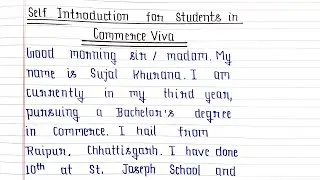 Self Introduction for Students in
Commerce Viva
Good morning sir / madam. My
name is Sujal Khurana. I am
currently in my third year,
pursuing a Bachelor's degree
in Commerce. I hail from
Raipur, Chhattisgarh. I have done
10th at St. Joseph School and